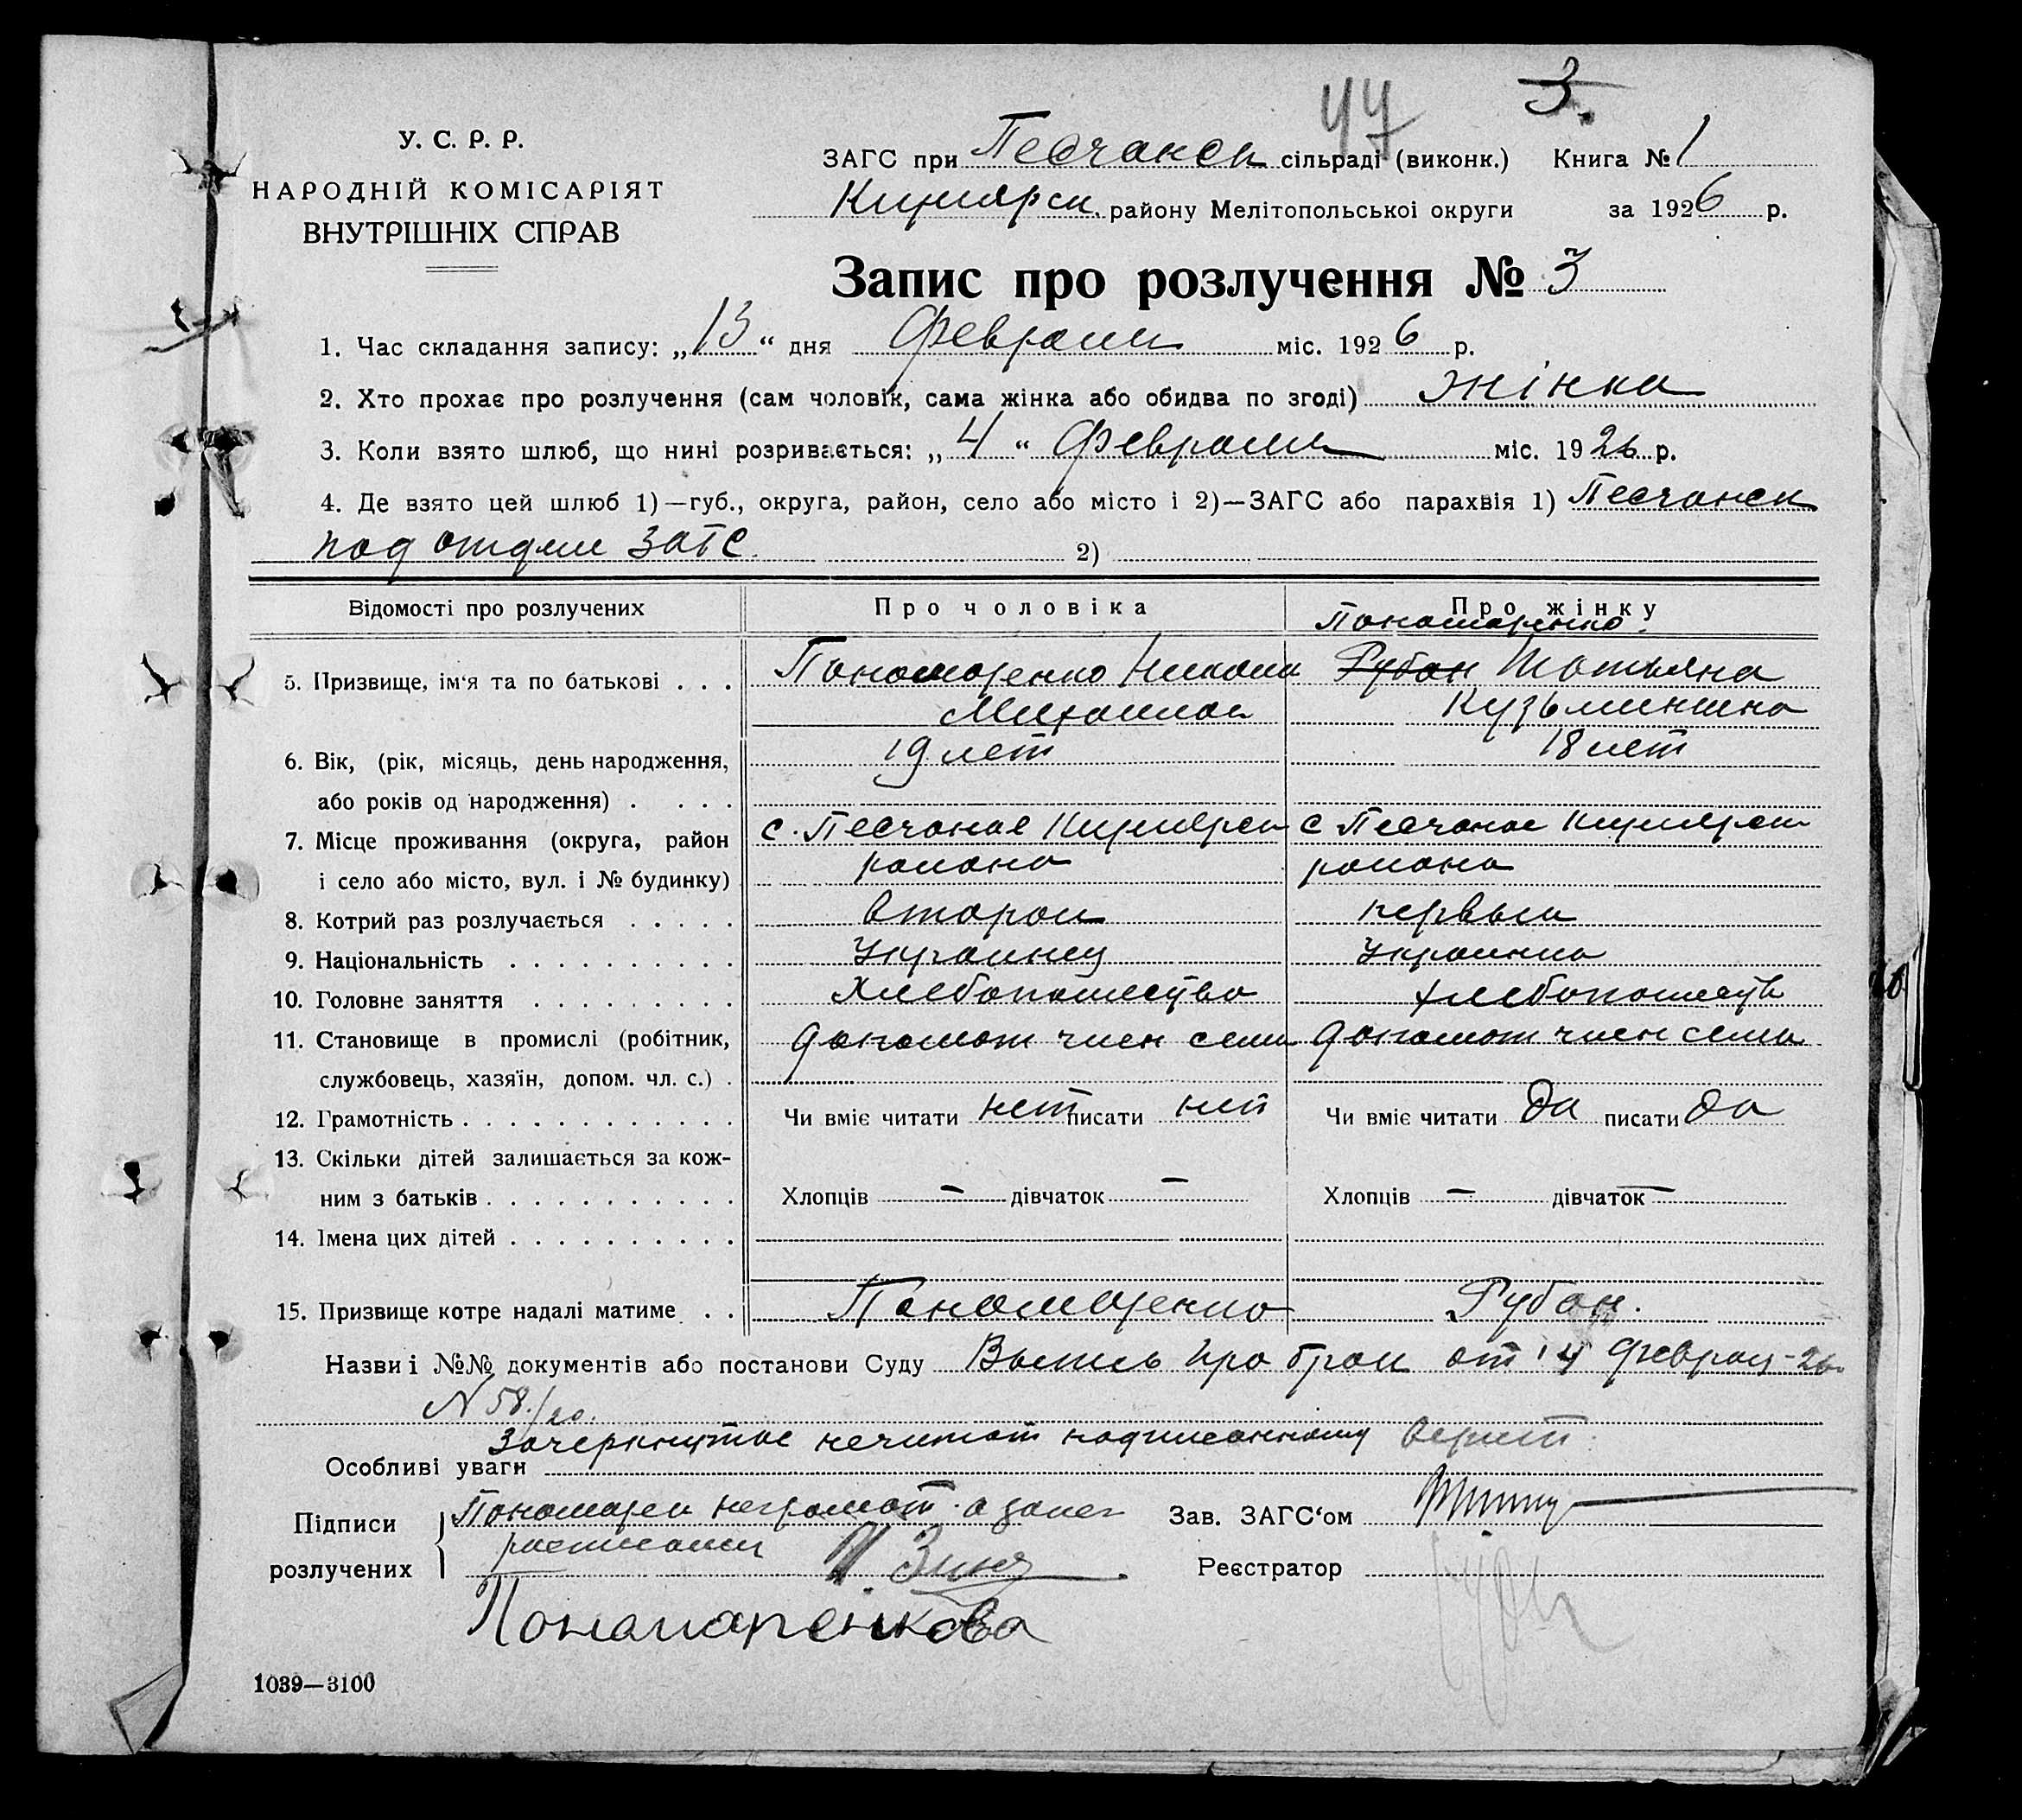 47 3.
У. С. Р. Р.
НАРОДНІЙ КОМІСАРІЯТ
ВНУТРІШНІХ СПРАВ
ЗАГС при Песчанск сільраді (виконк.) Книга № 1
района Мелітопольської округи за 1926 р.
Запис про розлучення № 3
1. Час складання запису: „13“ дня Февраля міс. 1926 р.
2. Хто прохає про розлучення (сам чоловік, сама жінка або обидва по згоді) жінка
3. Коли взято шлюб, що нині розривається: „4“ Февраля міс. 1926 р.
4. Де взято цей шлюб 1)—губ., округа, район, село або місто і 2)—ЗАГС або парахвія 1) Песчанск
под отдел ЗАГС. 2)
Відомості про розлучених Про чоловіка Про жінку
Пономаренко
5. Призвище, ім'я та по батькові . . . Пономаренко Никола Рубан Татьяна
Михаилов Кузьминична
6. Вік, (рік, місяць, день народження, 19 лет 18 лет
або років од народження) . . . .
7. Місце проживання (округа, район с. Песчаное с Песчаное
і село або місто, вул. і № будинку) района района
8. Котрий раз розлучається . . . . . второй первый
9. Національність . . . . . . . . . . Украинец Украинка
10. Головне заняття . . . . . . . . . Хлебопашество хлебопашеств
11. Становище в промислі (робітник, допомог член семи допомог член семи
службовець, хазяїн, допом. чл. с.) .
12. Грамотність . . . . . . . . . . . . Чи вміє читати нет писати нет Чи вміє читати да писати да
13. Скільки дітей залишається за кож-
ним з батьків . . . . . . . . . . . Хлопців — дівчаток — Хлопців — дівчаток —
14. Імена цих дітей . . . . . . . . . .
15. Призвище котре надалі матиме . . Пономаренко Рубан.
Назви і №№ документів або постанови Суду Выпись про брак от 4 Феврал-26
N 58/20.
Зачеркнутое нечитат надписанному верит.
Особливі уваги
Підписи розлучених Пономарен неграмот. а за него Зав. ЗАГС'ом
расписался
Реєстратор
Понамаренкова
1039—3100